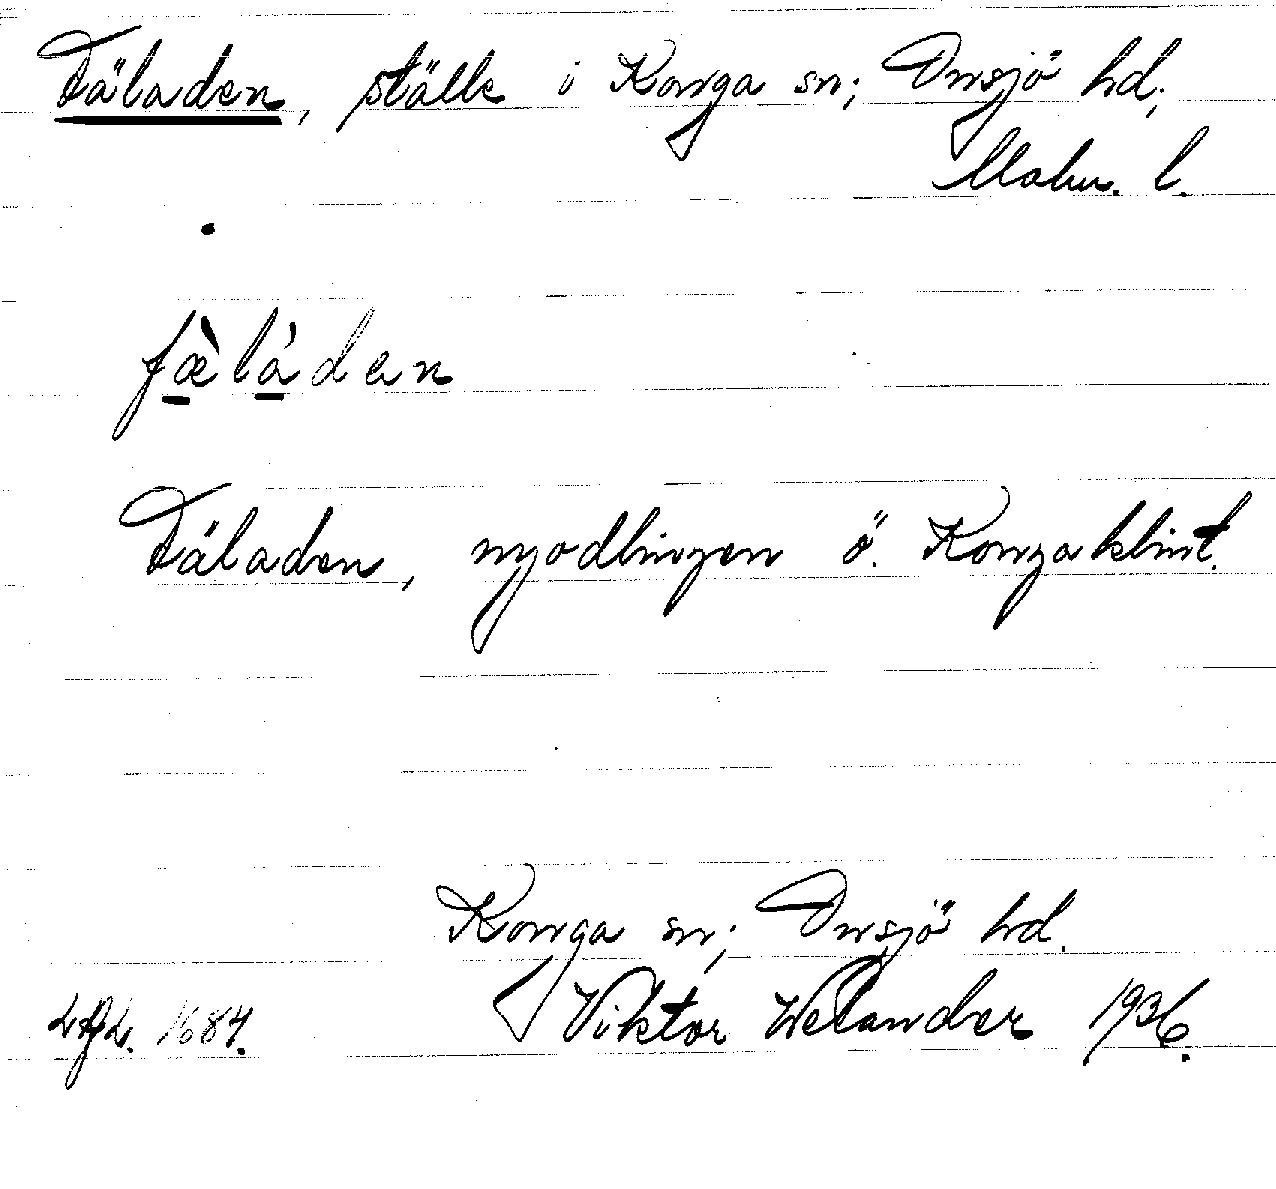 Fäladen, ställe i Konga sn; Onsjö hd;
Malm. l.
fæ̀làden
Fäladen, nyodlingen ö. Kongaklint.
Konga sn; Onsjö hd.
Viktor Welander 1936.
1684.